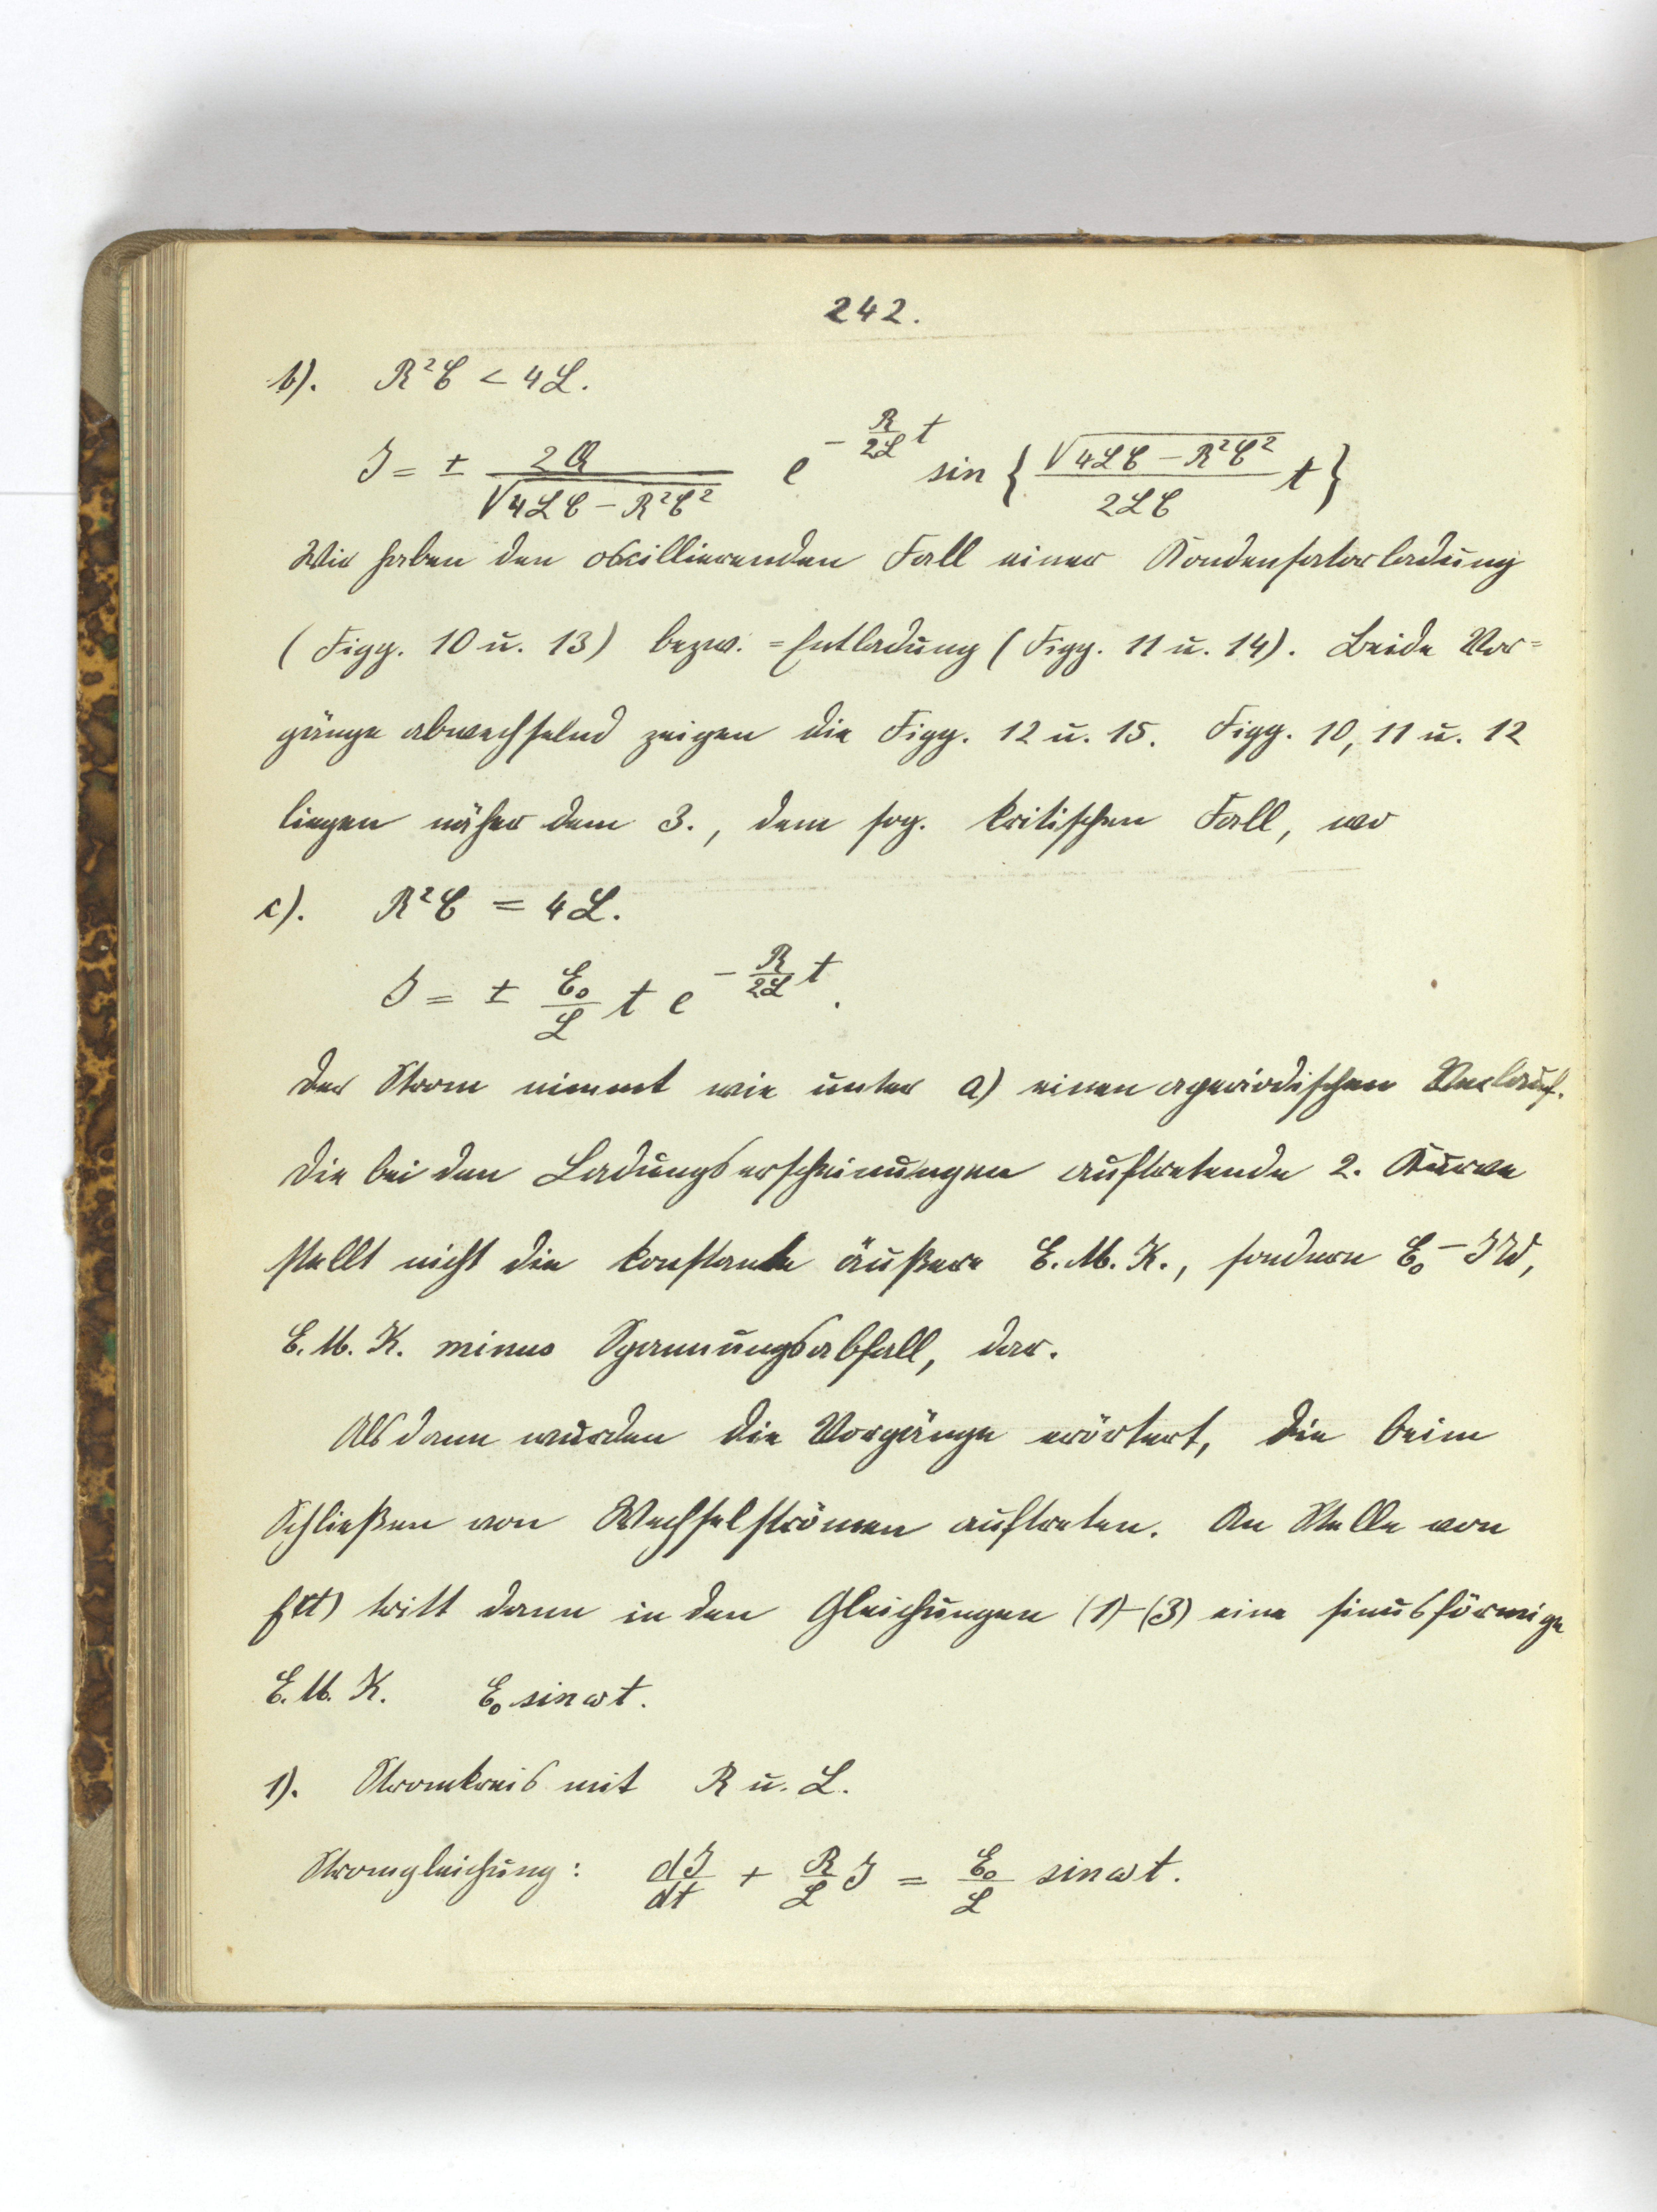 242.
b). R²C < 4L.
J = ± 2Q / √(4LC − R²C²) e^(−(R/2L) t) sin { √(4LC − R²C²) / 2LC t }
Wir haben den oscillierenden Fall einer Kondensatorladung
(Figg. 10 u. 13) bezw. =Entladung (Figg. 11 u. 14). Beide Vor=
gänge abwechselnd zeigen die Figg. 12 u. 15. Figg. 10, 11 u. 12
liegen näher dem 3., dem sog. kritischen Fall, wo
c). R²C = 4L.
J = ± E₀/L t e^(−(R/2L) t).
Der Strom nimmt wie unter a) einen aperiodischen Verlauf.
Die bei den Ladungserscheinungen auftretende 2. Kurve
stellt nicht die konstante äußere E.M.K., sondern E₀ − JW,
E.M.K. minus Spannungsabfall, dar.
Alsdann wurden die Vorgänge erörtert, die beim
Schließen von Wechselströmen auftreten. An Stelle von
f(t) tritt dann in den Gleichungen (1)-(3) eine sinusförmige
E.M.K. E₀ sin ωt.
1). Stromkreis mit R u. L.
Stromgleichung: dJ/dt + R/L J = E₀/L sin ωt.